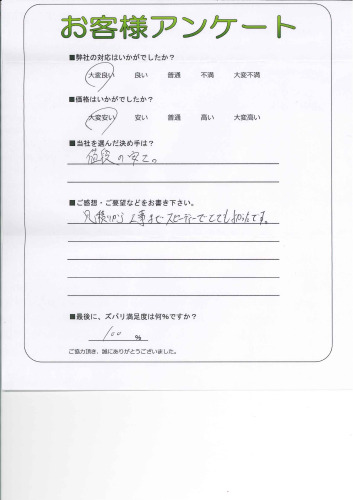 お客様アンケート
■弊社の対応はいかがでしたか？
大変良い 良い 普通 不満 大変不満
■価格はいかがでしたか？
大変安い 安い 普通 高い 大変高い
■当社を選んだ決め手は？
値段の安さ。
■ご感想・ご要望などをお書き下さい。
見積りから工事までスピーディーでとても助かったです。
■最後に、ズバリ満足度は何%ですか？
100 %
ご協力頂き、誠にありがとうございました。